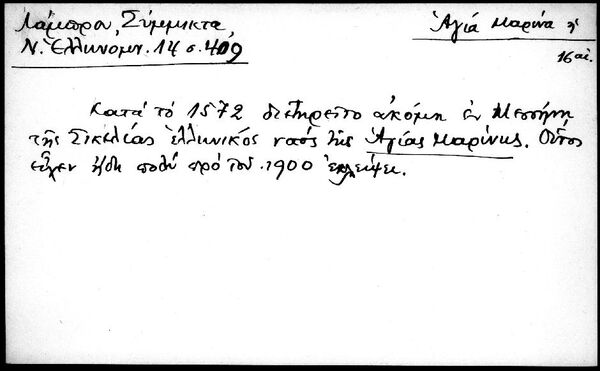 Λάμπρου, Σύμμικτα,
Ν. Ἑλληνομν. 14 σ. 409
Ἁγία Μαρίνα
16 αἰ.
Κατὰ τὸ 1572 διετηρεῖτο ἀκόμη ἐν Μεσσήνῃ
τῆς Σικελίας ἑλληνικὸς ναὸς τῆς Ἁγίας Μαρίνης. Οὗτος
εἶχεν ἤδη πολὺ πρὸ τοῦ 1900 ἐκλείψει.